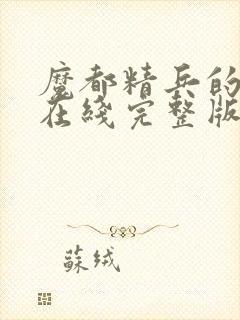 魔都精兵的
在綫完整版
蘇绒